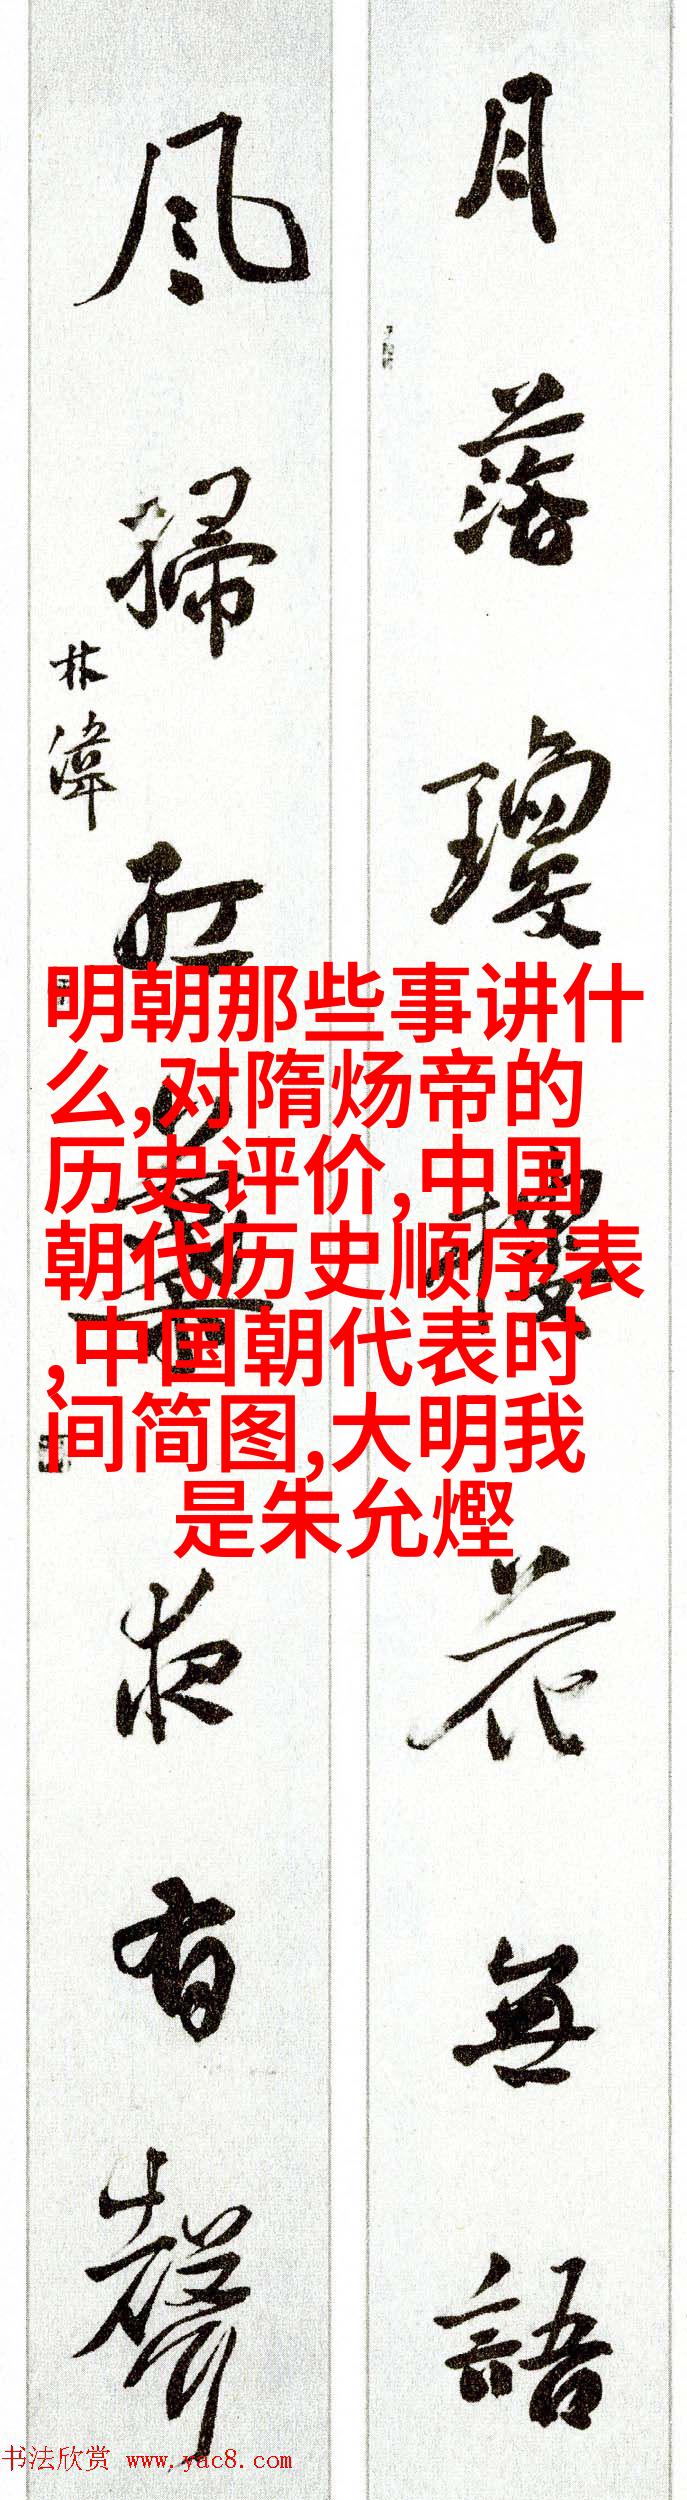 月落瓊樓花無語
風掃紅
夜有聲
林
明朝那些事讲什
么,对隋炀帝的
历史评价,中国
朝代历史顺序表
,中国朝代表时
间简图,大明我
是朱允熞
书法欣赏 www.yac8.com